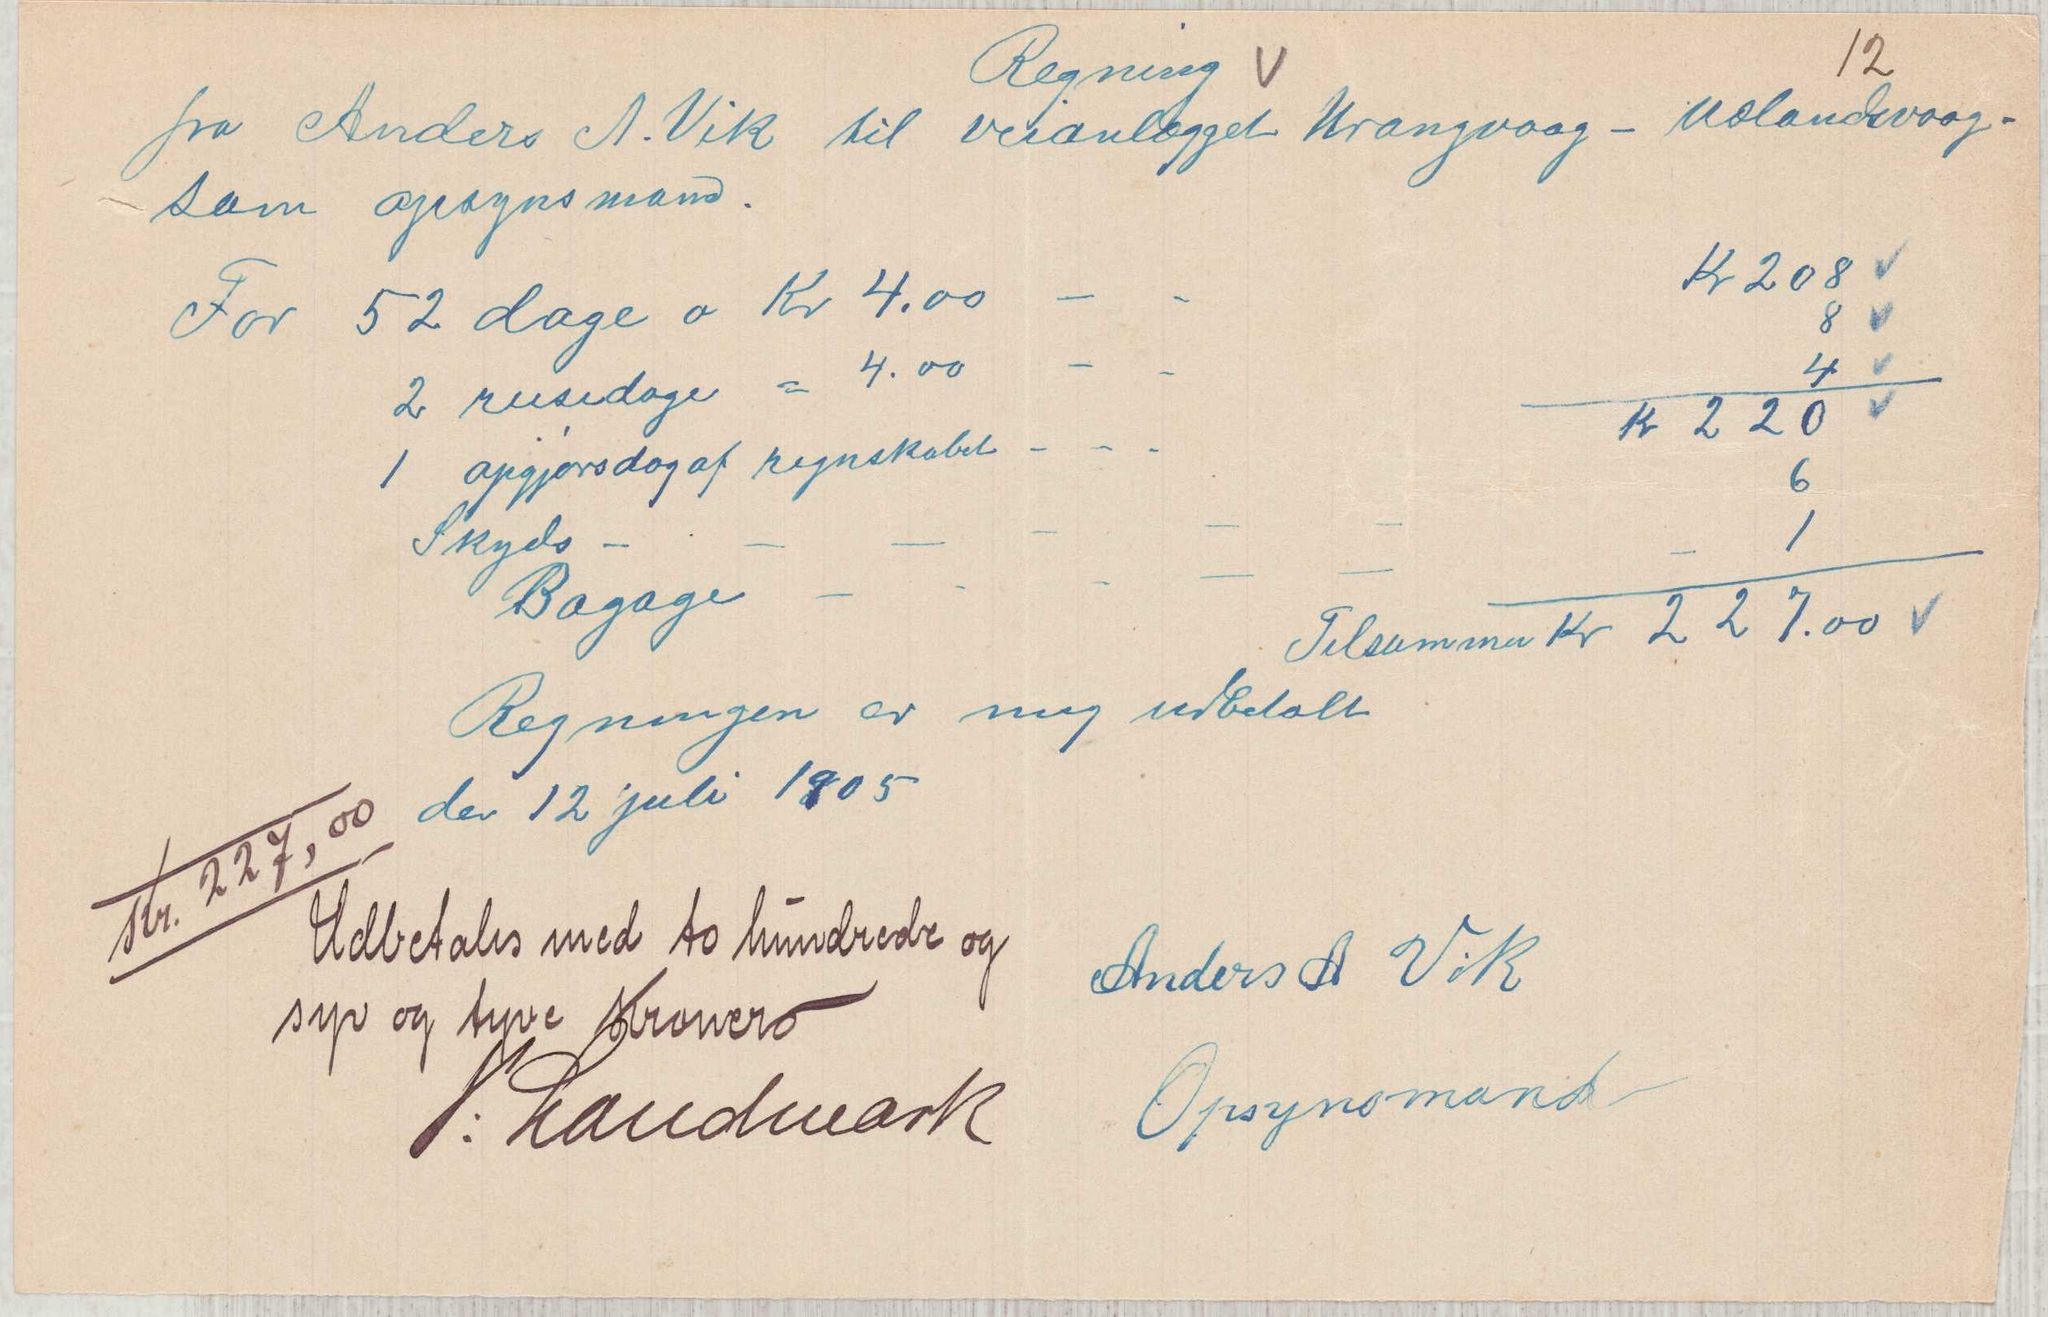 12
Regning V
fra Anders A. Vik til veianlægget Urangvaag - Uslandsvaag -
som opsynsmand.
For 52 dage a Kr 4.00 - - Kr 208
2 reisedage = 4.00 - - 8
1 opgjørsdag af regnskabet - - - 4
Kr 220
Skyds - - - - - - 6
Bagage - - - - - - 1
Tilsammen Kr 227.00
Regningen er mig udbetalt
den 12 juli 1905
Kr. 227,00
Udbetales med to hundrede og
syv og tyve Kroner
Anders A Vik
Opsynsmand
Landmark